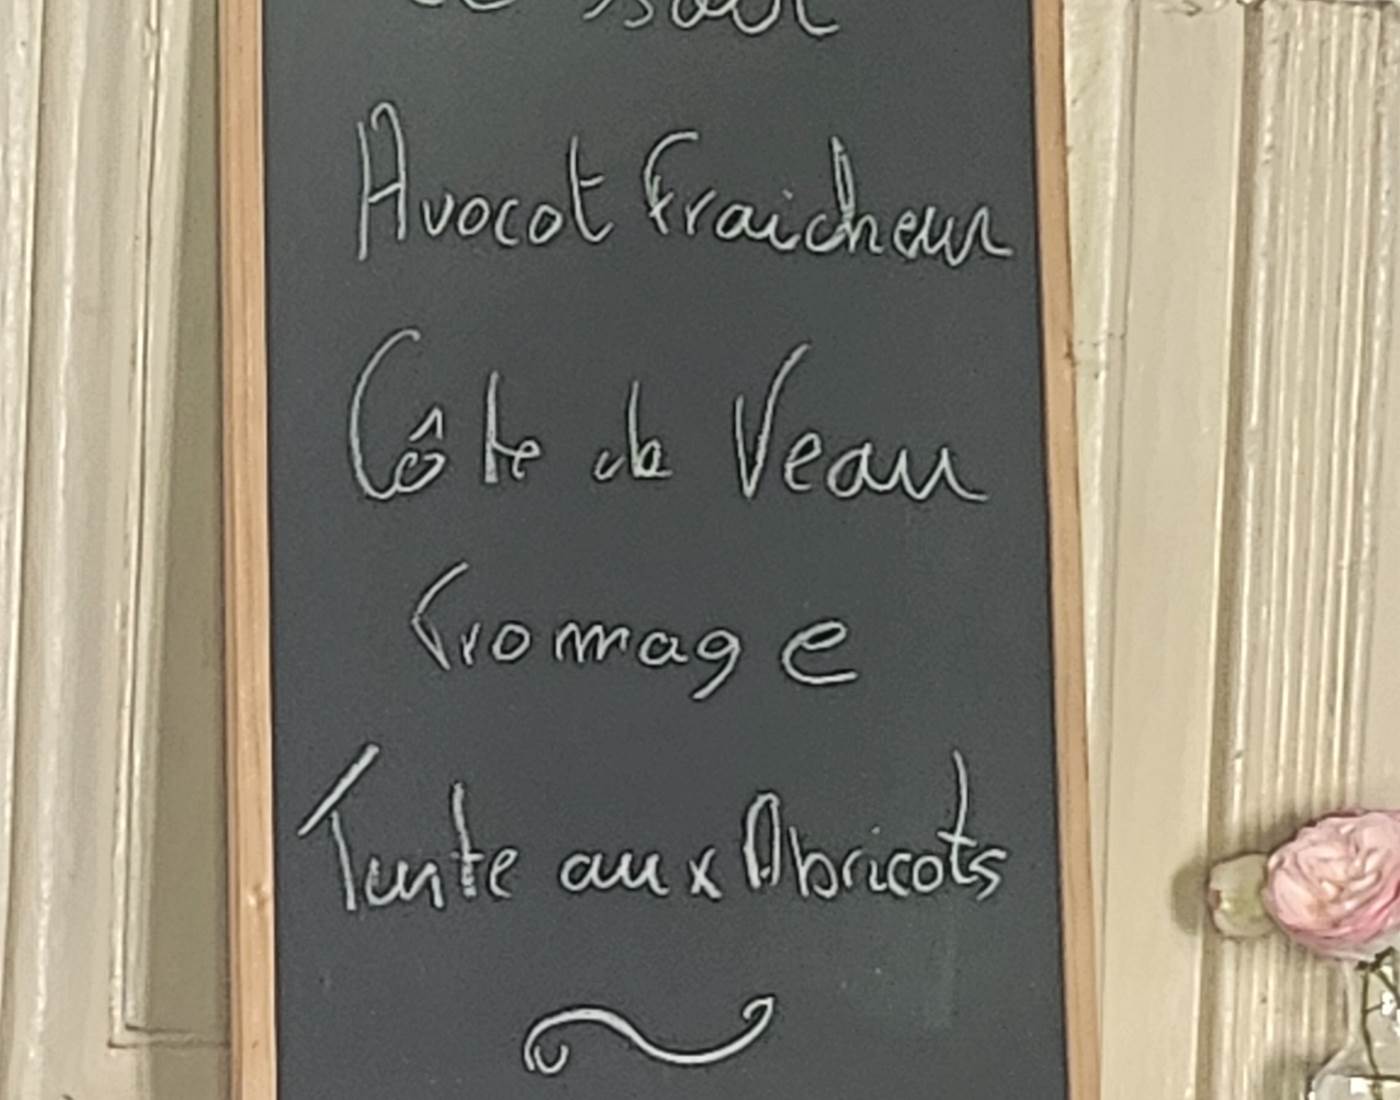 Ce soir
Avocat Fraicheur
Côte de Veau
Fromage
Tarte aux Abricots